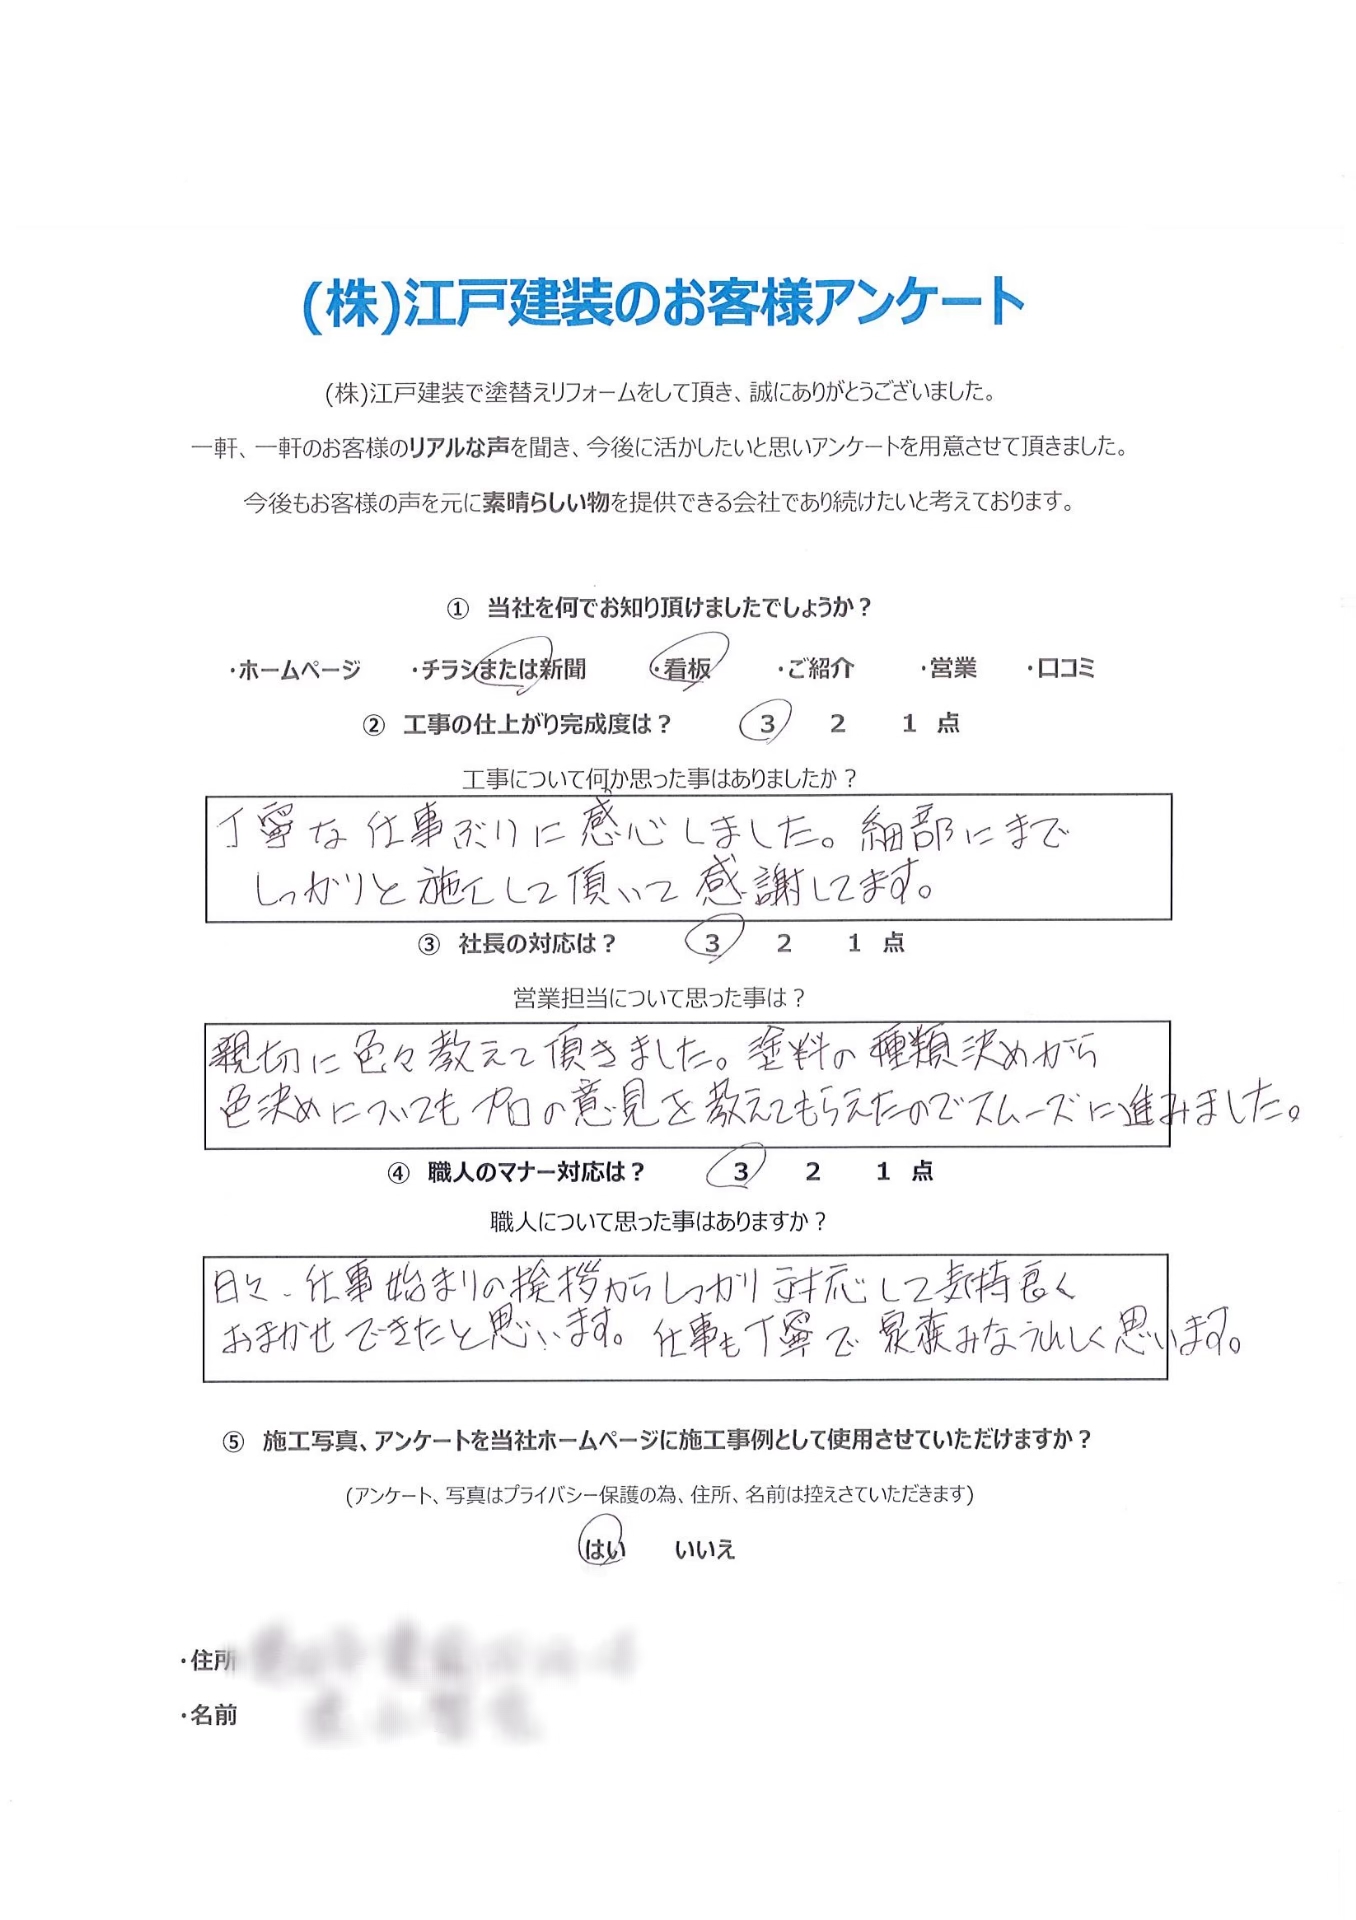 (株)江戸建装のお客様アンケート
(株)江戸建装で塗替えリフォームをして頂き、誠にありがとうございました。
一軒、一軒のお客様のリアルな声を聞き、今後に活かしたいと思いアンケートを用意させて頂きました。
今後もお客様の声を元に素晴らしい物を提供できる会社であり続けたいと考えております。
① 当社を何でお知り頂けましたでしょうか？
・ホームページ ・チラシまたは新聞 ・看板 ・ご紹介 ・営業 ・口コミ
② 工事の仕上がり完成度は？ 3 2 1 点
工事について何か思った事はありましたか？
丁寧な仕事ぶりに感心しました。細部にまで
しっかりと施工して頂いて感謝してます。
③ 社長の対応は？ 3 2 1 点
営業担当について思った事は？
親切に色々教えて頂きました。塗料の種類決めから
色決めについてもプロの意見を教えてもらえたのでスムーズに進みました。
④ 職人のマナー対応は？ 3 2 1 点
職人について思った事はありますか？
日々、仕事始まりの挨拶からしっかり対応して気持良く
おまかせできたと思います。仕事も丁寧で家族みなうれしく思います。
⑤ 施工写真、アンケートを当社ホームページに施工事例として使用させていただけますか？
(アンケート、写真はプライバシー保護の為、住所、名前は控えさていただきます)
はい いいえ
・住所
・名前